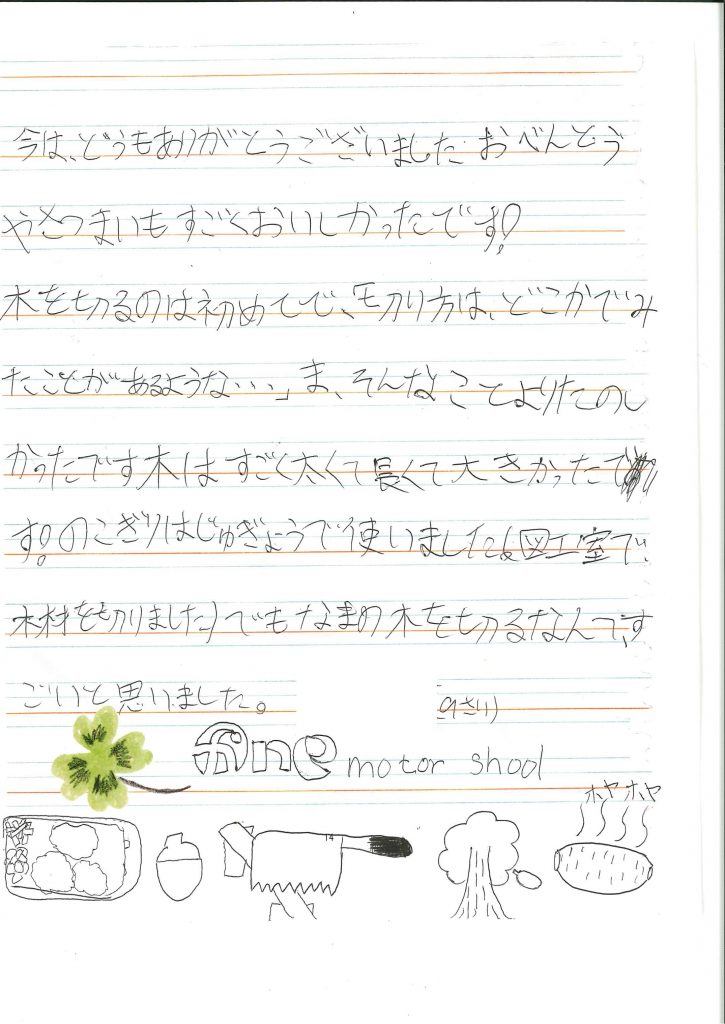 今は、どうもありがとうございました。おべんとう
やさつまいもすごくおいしかったです!
木を切るのは初めてで、「切り方は、どこかでみ
たことがあるような・・・」ま、そんなことよりたのし
かったです木はすごく太くて長くて大きかったで
す!のこぎりはじゅぎょうで使いました(図工室で、
木材を切りました)でもなまの木を切るなんて、す
ごいと思いました。
(9さい)
fine motor shool
ホヤホヤ
14